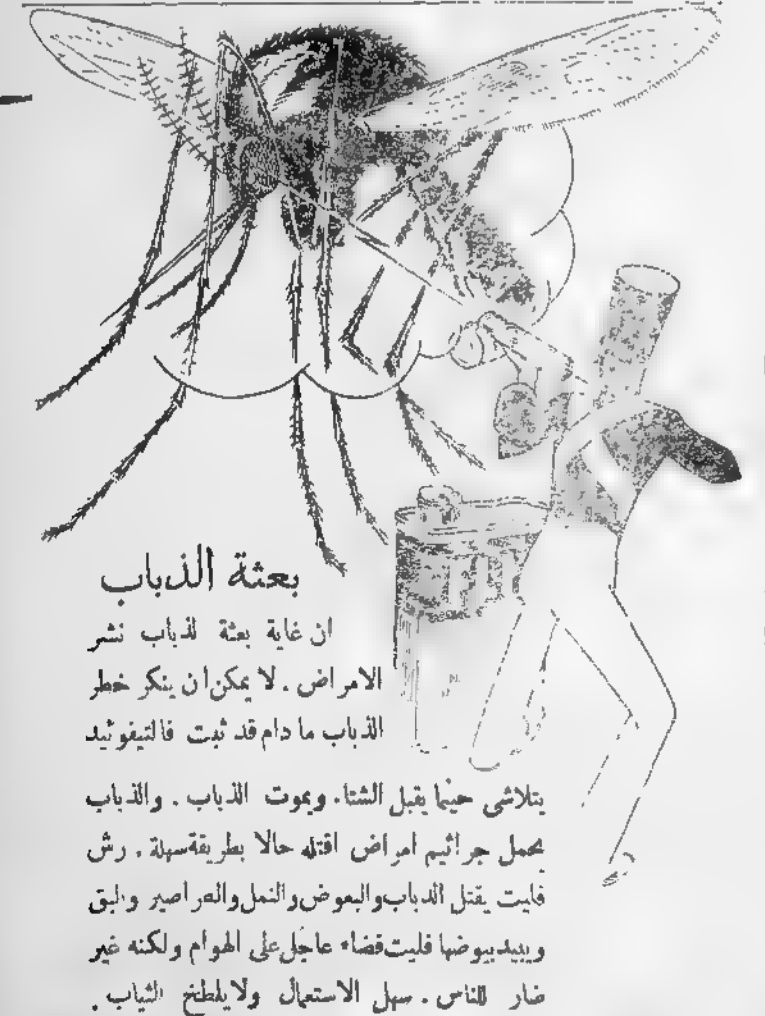 بعثة الذباب
ان غاية بعثة لذباب نشر
الامراض . لا يمكن ان ينكر خطر
الذباب ما دام قد ثبت فالتيفوئيد
يتلاشى حينما يقبل الشتا. ويموت الذباب . والذباب
يحمل جراثيم امراض اقتله حالا بطريقة سهلة . رش
فليت يقتل الذباب والبعوض والنمل والصراصير والبق
ويبيد بيوضها فليت قضاء عاجل على الهوام ولكنه غير
ضار للناس . سهل الاستعمال ولا يلطخ الثياب .